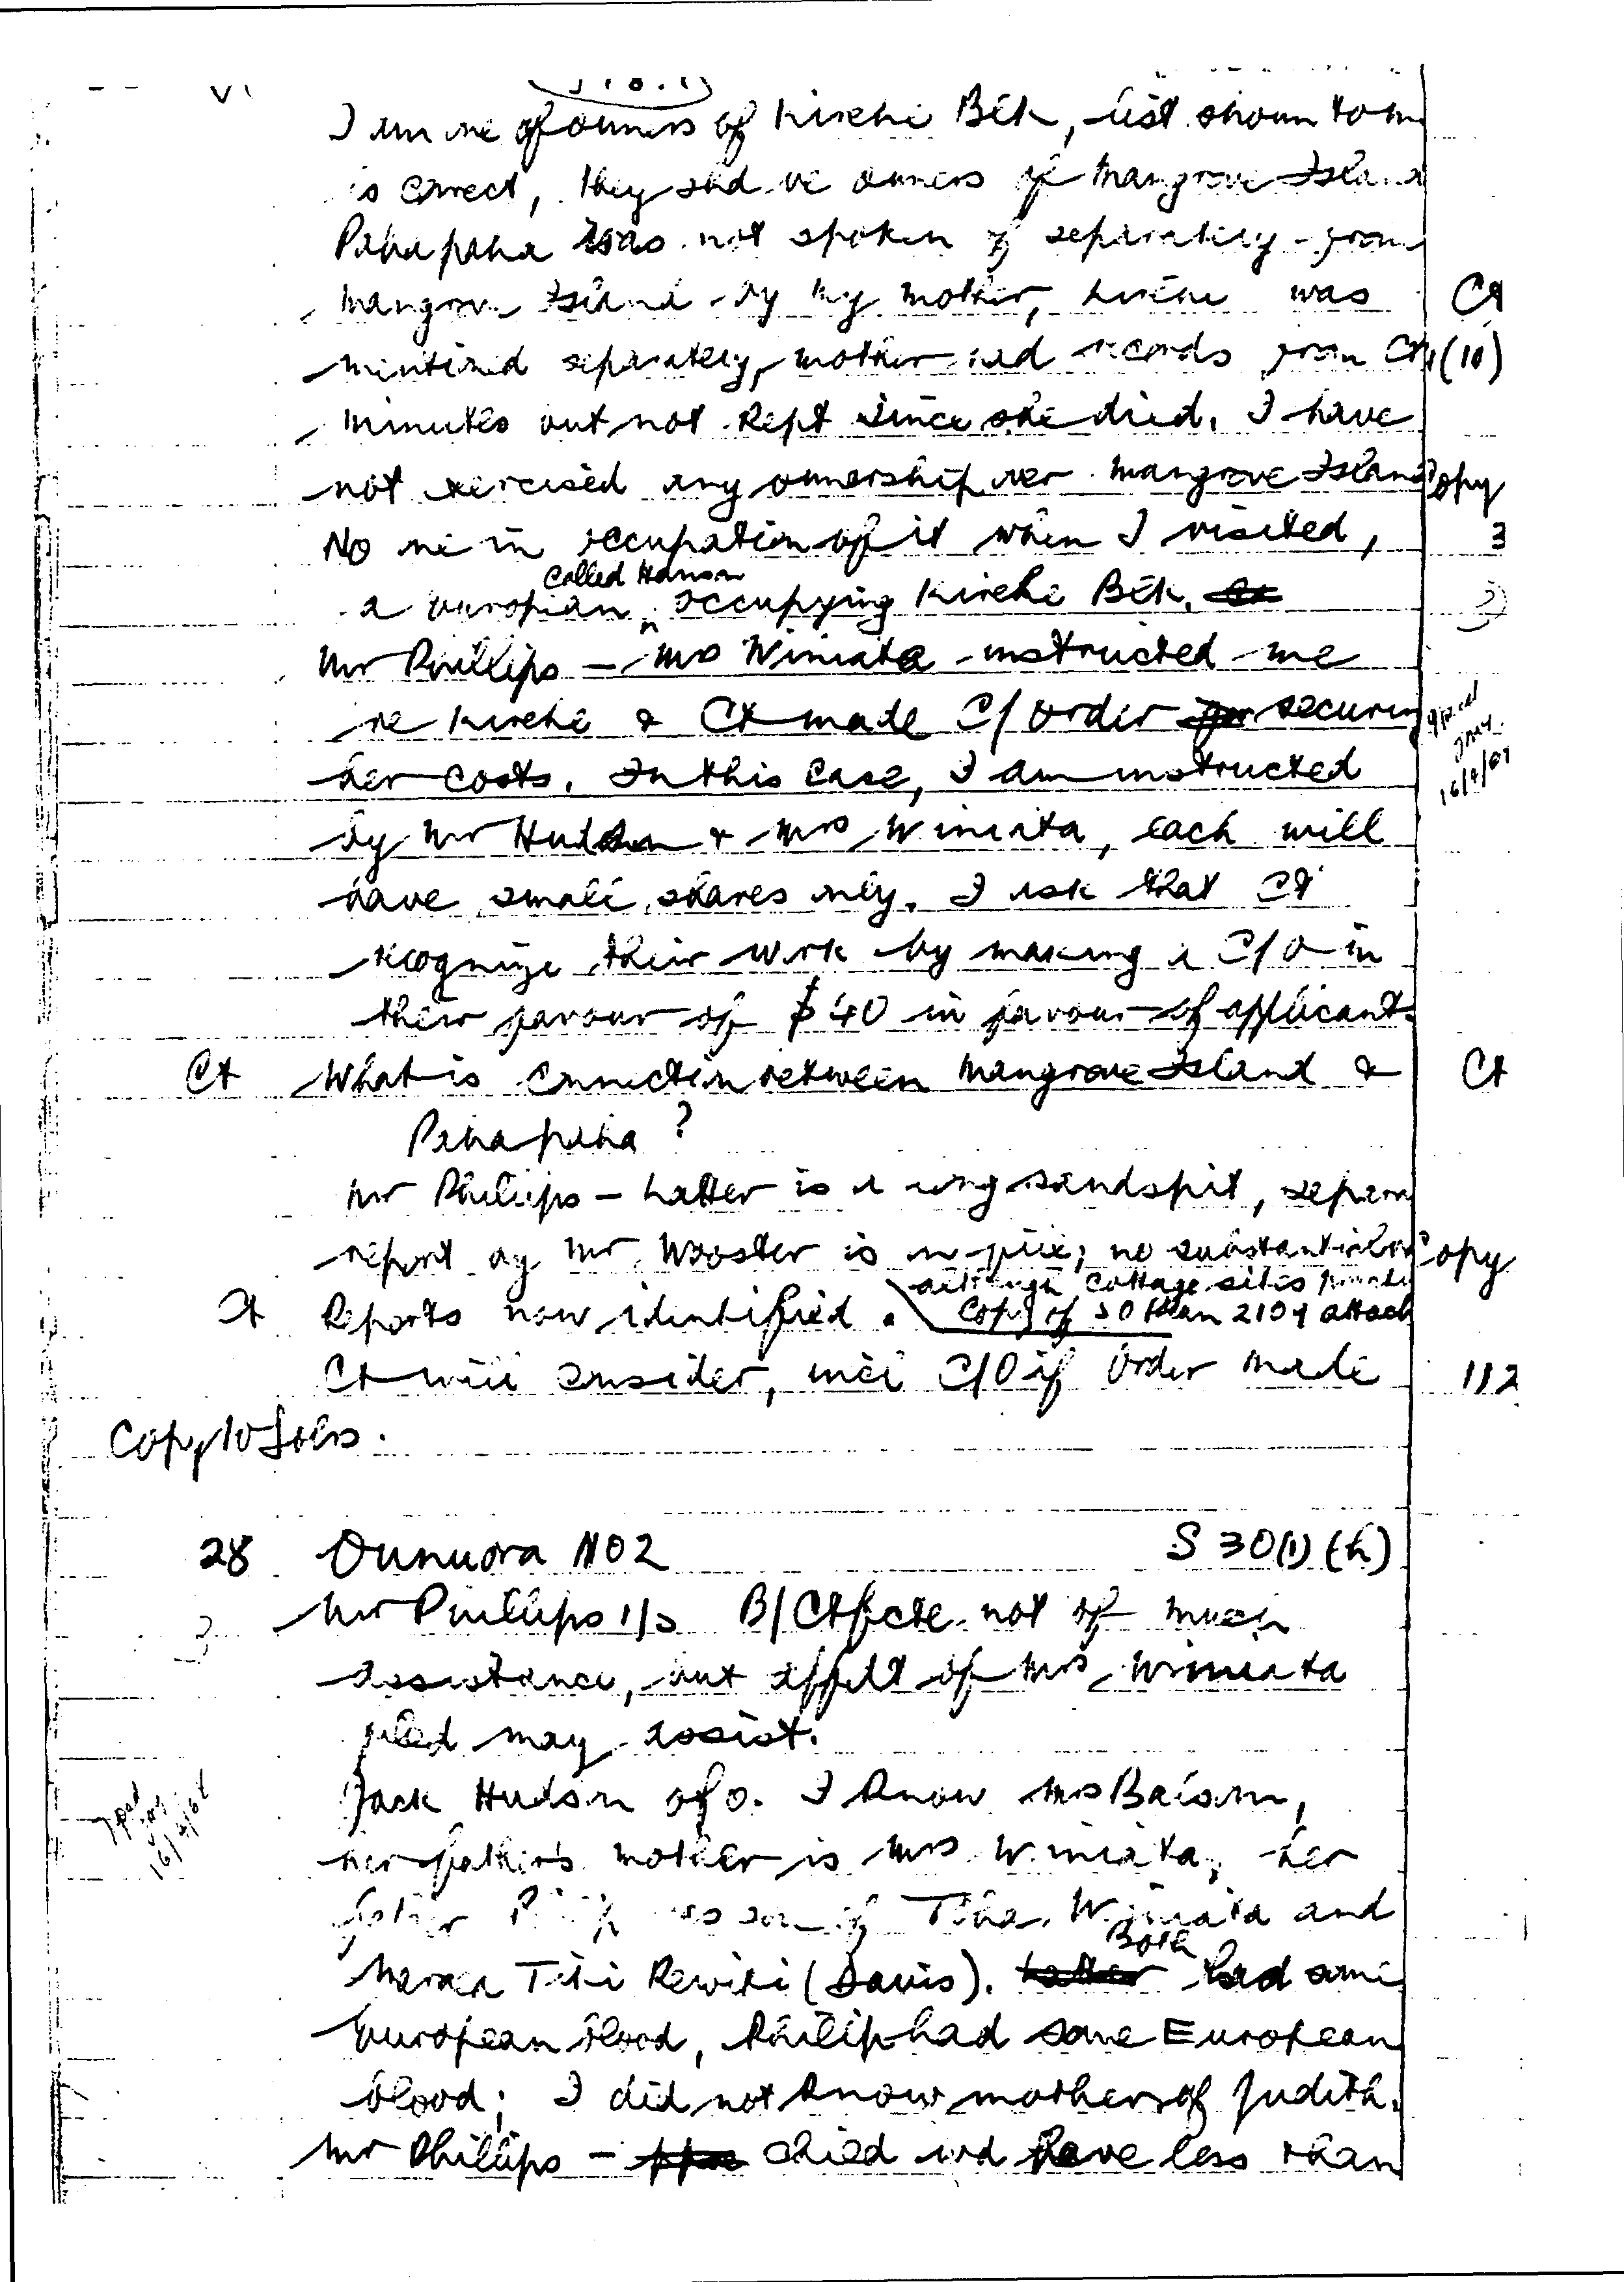 I am one of owners of Kirehe Blk, list shown to me
is correct, they shd be owners of Mangrove Island
Pahapaha was not spoken of separately from
Mangrove Island by my mother, Kirehe was
mentioned separately, mother had records from Ct
minutes but not kept since she died. I have
not exercised any ownership over Mangrove Island
No one in occupation of it when I visited,
called
a European occupying Kirehe Blk.
Mr Phillips – Mrs Winiata instructed me
re Kirehe & Ct made C/Order securing
her costs. In this case, I am instructed
by Mr Hudson & Mrs Winiata, each will
have small shares only. I ask that Ct
recognize their work by making a C/O in
their favour of $40 in favour of applicants
Ct What is connection between Mangrove Island &
Pahapaha?
Mr Phillips – Latter is a long sandspit, separate
report by Mr Wooster is on file; no substantial
although cottage sites
Ct Reports now identified. Copy of SO Plan 2109 attach
Ct will consider, incl C/O if Order made
Copy to Solrs.
28 Ounuora No 2 S 30(1) (h)
Mr Phillips i/s B/Ctfcte not of much
assistance, but affdt of Mrs Winiata
filed may assist.
Jack Hudson o/o. I know Mrs
her father's mother is Mrs Winiata, her
father was son of Winiata and
Titi Rewiri (Davis). Both had some
European blood, Philip had some European
blood; I did not know mother of Judith.
Mr Phillips – child wd have less than
Ct
(10)
Copy
3
Ct
Copy
112